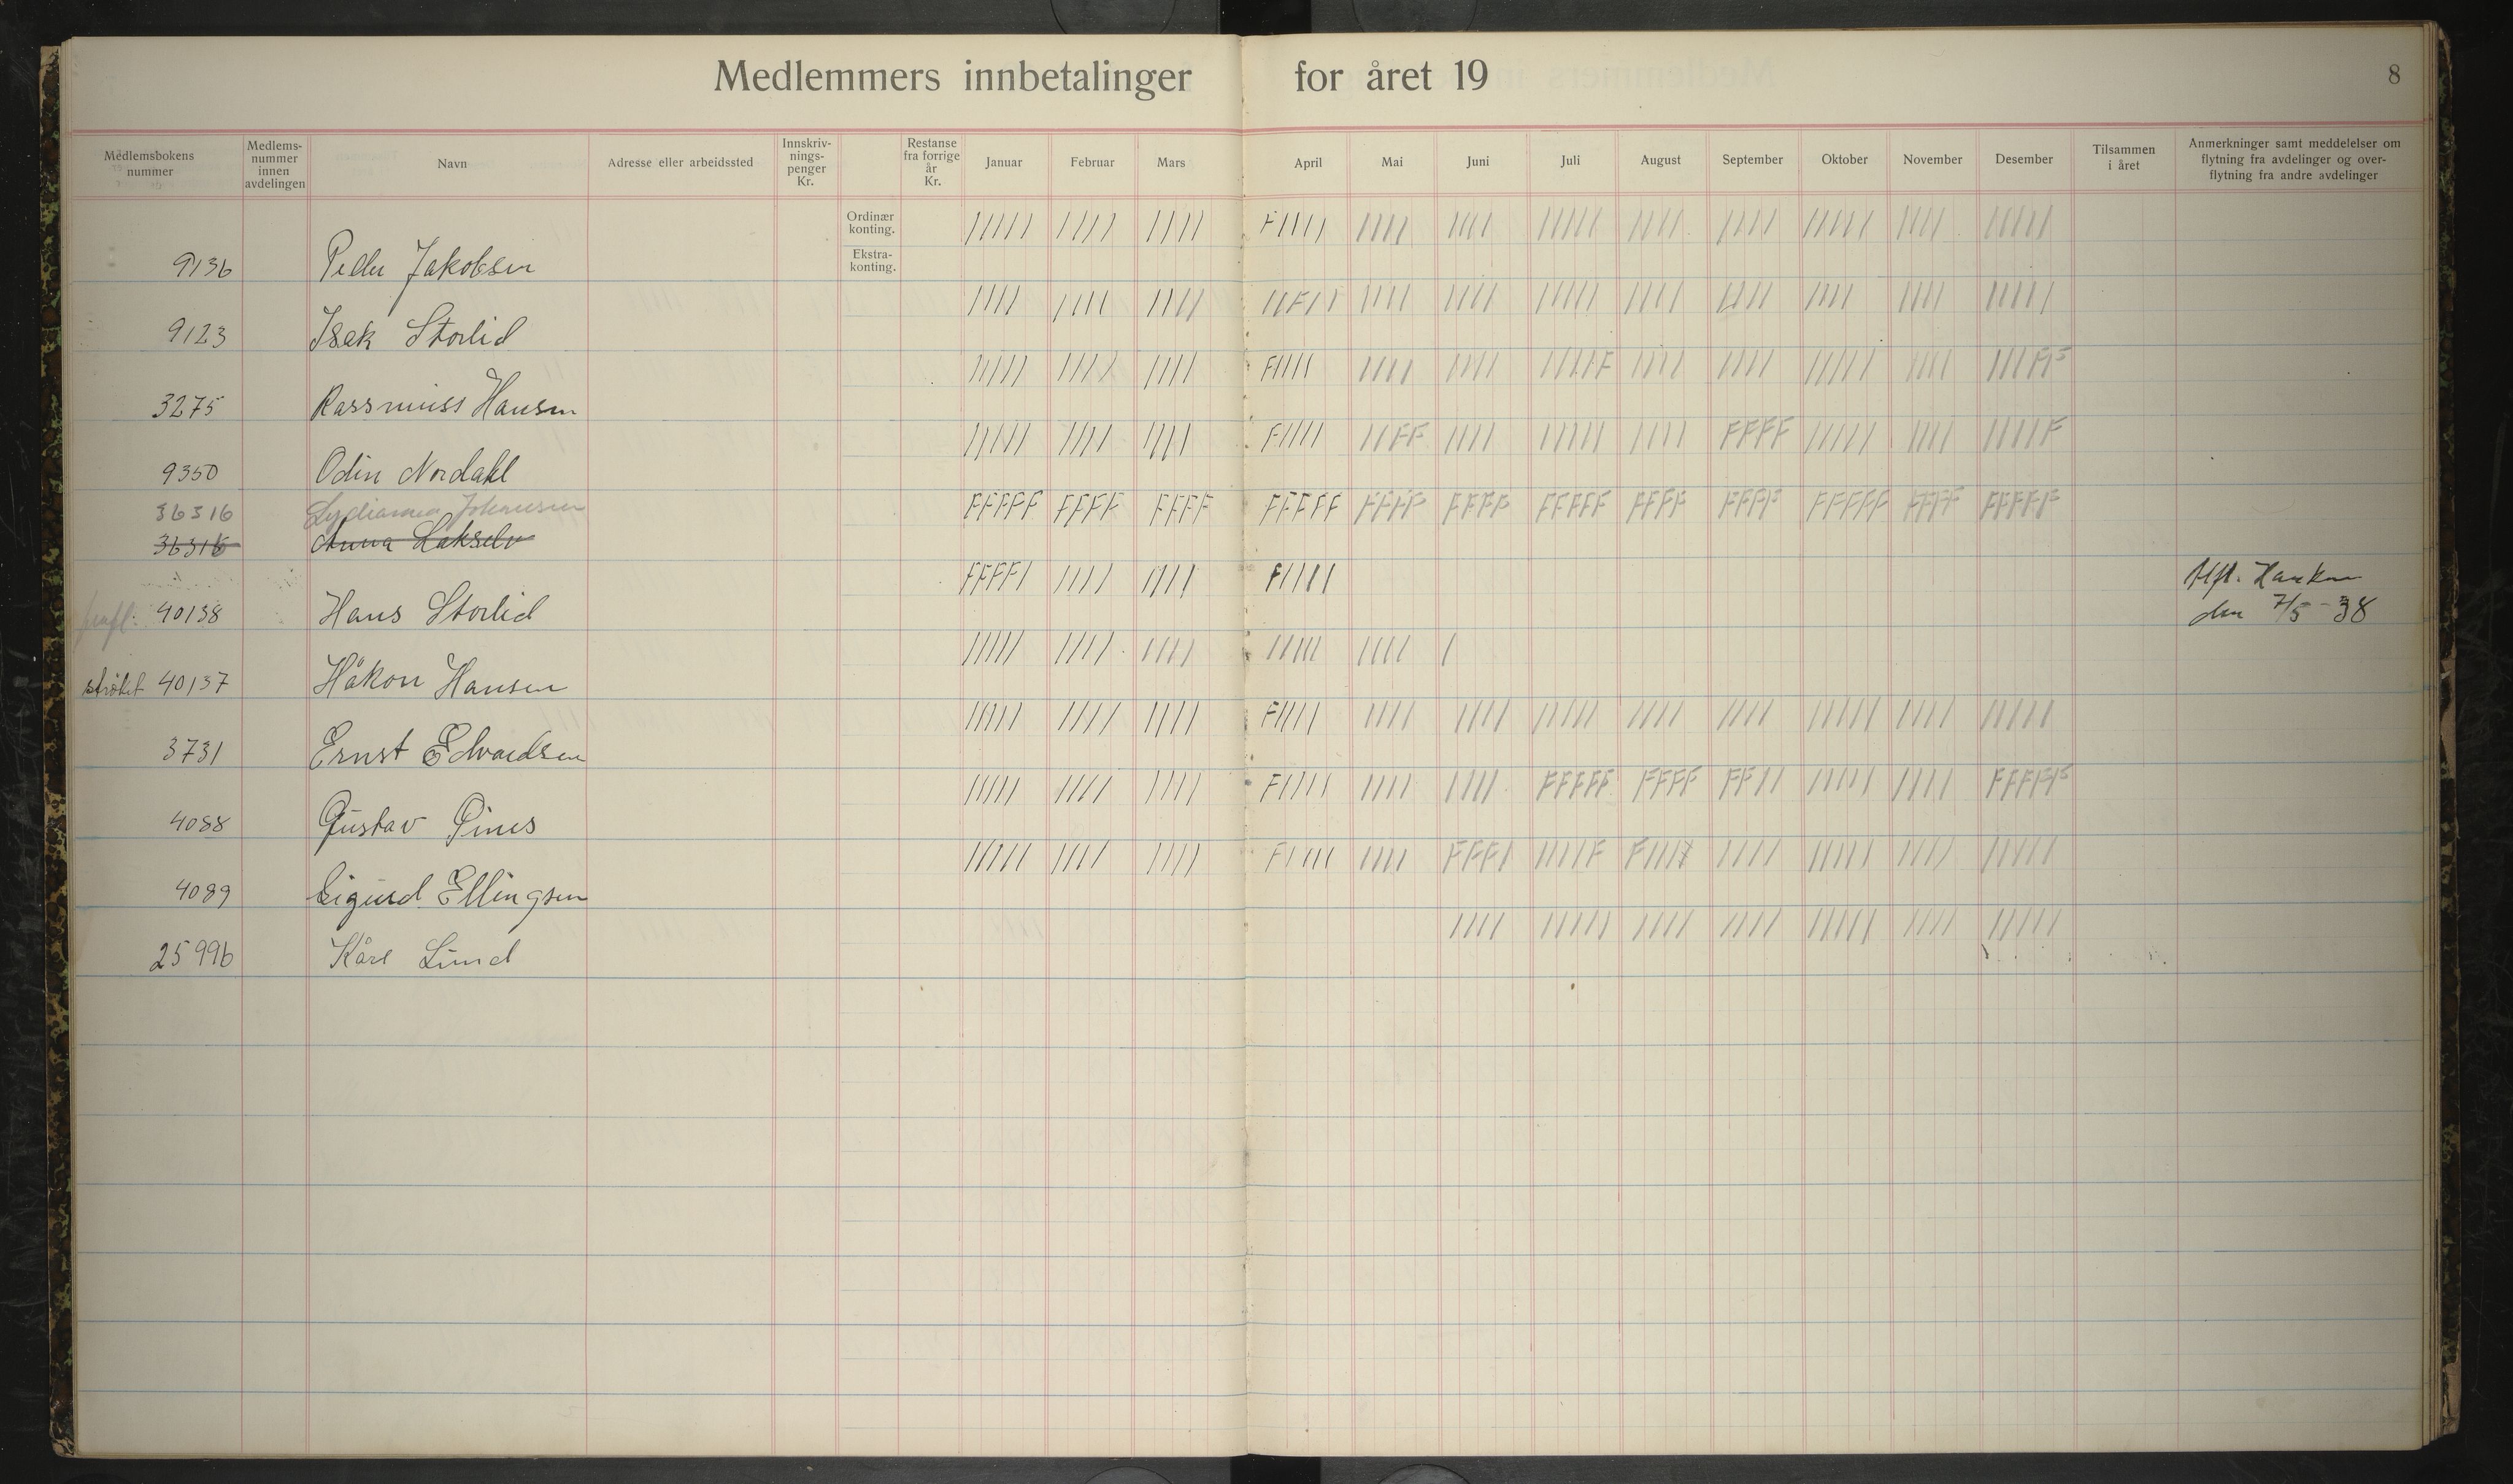 Medlemmers innbetalinger for året 19
8
Medlemsbokens nummer
Medlems-nummer innen avdelingen
Navn
Adresse eller arbeidssted
Innskriv-nings-penger Kr.
Restanse fra forrige år Kr.
Januar
Februar
Mars
April
Mai
Juni
Juli
August
September
Oktober
November
Desember
Tilsammen i året
Anmerkninger samt meddelelser om flytning fra avdelinger og over-flytning fra andre avdelinger
Ordinær konting.
Ekstra-konting.
9136 Peder Jakobsen ///// //// //// F//// //// //// ///// //// //// ///// //// /////
9123 Isak Storlid //// //// //// //F// //// //// ///// //// //// //// //// /////
3275 Rassmuss Hansen ///// //// //// F//// //// //// ////F //// //// ///// //// ///FF
9350 Odin Nordahl ///// //// //// F//// //FF //// ///// //// FFFF ///// //// ////F
36316 Lydianna Johansen FFFFF FFFF FFFF FFFFF FFFF FFFF FFFFF FFFF FFFF FFFFF FFFF FFFFF
36316 Anna Lakselv
40138 Hans Storlid FFFF/ //// //// F////
den 7/5-38
strøket 40137 Håkon Hansen ///// //// //// ///// //// /
3731 Ernst Edvardsen ///// //// //// F//// //// //// ///// //// //// ///// //// /////
4088 Gustav Pines ///// //// //// F//// //// //// FFFFF FFFF FF// ///// //// FFFFF
4089 Sigurd Ellingsen ///// //// //// F//// //// FFF/ ////F F//// //// ///// //// /////
25996 Kåre Lund //// ///// //// //// ///// //// /////